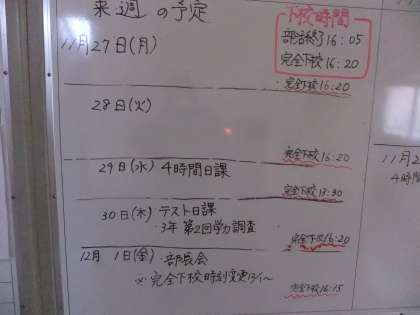 来週の予定
下校時間
部活終了16:05
完全下校16:20
11月27日(月)
完全下校16:20
28日(火)
完全下校16:20
29日(水) 4時間日課
完全下校13:30
30日(木) テスト日課
・3年 第2回学力調査
完全下校16:20
12月 1日(金) 部長会
※完全下校時刻変更12/1~
完全下校16:15
11月2
4時間